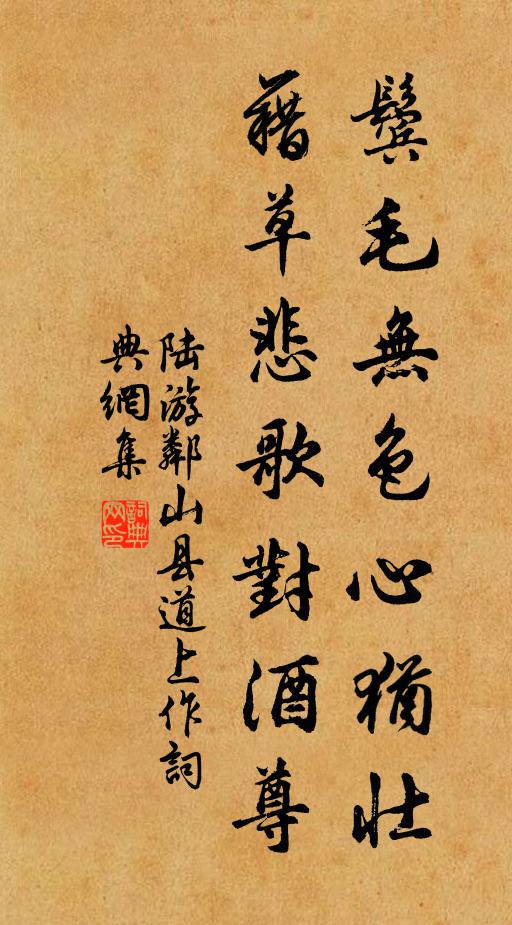 鬓毛無色心猶壮
藉草悲歌對酒尊
陆游鄰山县道上作詞
典網集
詞典
网印